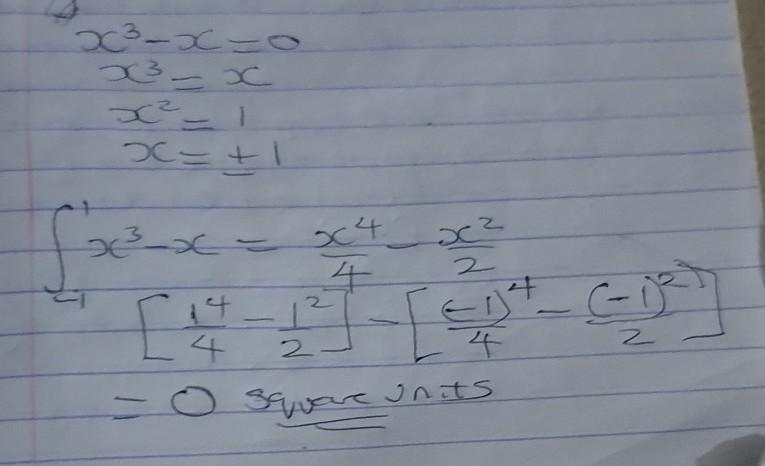 x³ - x = 0
x³ = x
x² = 1
x = ± 1
∫₋₁¹ x³ - x = x⁴/4 - x²/2
[1⁴/4 - 1²/2] - [(-1)⁴/4 - (-1)²/2]
= 0 square units